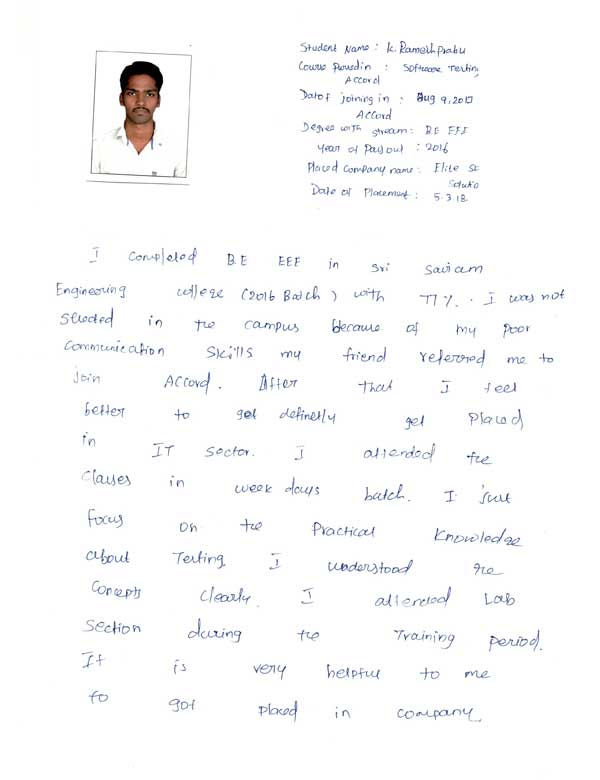 Student Name : K. Rameshprabu
Course Joined in : Software Testing
Accord
Date of joining in : Aug 9, 2017
Accord
Degree with stream : BE EEE
Year of Pass out : 2016
Placed Company name : Elite
Date of Placement : 5.3.18
I completed BE EEE in Sri Sairam
Engineering college (2016 Batch) with 77%. I was not
in the campus because of my poor
Communication Skills my friend referred me to
join Accord. After that I feel
better to get definetly get Placed
in IT sector. I attended the
Classes in week days batch. I just
focus on the Practical Knowledge
about Testing. I understood the
Concepts clearly. I attended Lab
Section during the Training period.
It is very helpful to me
to got placed in company.